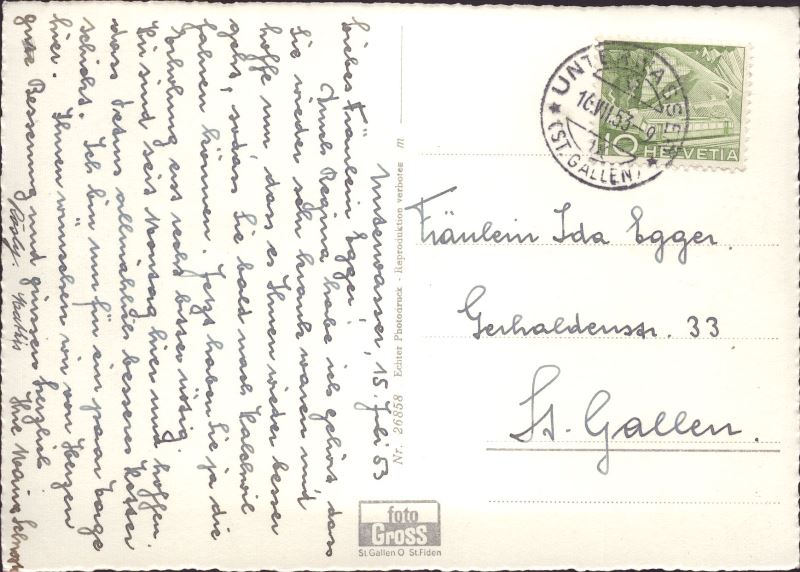 Unterwasser, 15. Juli 53
Liebes Fräulein Egger,
Durch Regina habe ich gehört, dass
Sie wieder sehr krank waren und
hoffe nun, dass es Ihnen wieder besser
geht, sodass Sie bald nach
fahren können. Jetzt haben Sie ja die
Erholung erst recht bitter nötig.
Wir sind seit Montag hier und hoffen,
dass es allmählich besseres Wetter
schickt. Ich bin nur für ein paar Tage
hier. Ihnen wünschen wir von Herzen
gute Besserung und grüssen herzlich
Ihre
Nr. 26858 Echter Photodruck - Reproduktion verboten m
foto
Gross
St.Gallen O St.Fiden
UNTERWASSER
16.VII.53-9
(ST.GALLEN)
10 HELVETIA
Fräulein Ida Egger.
Gerhaldenstr. 33
St. Gallen.